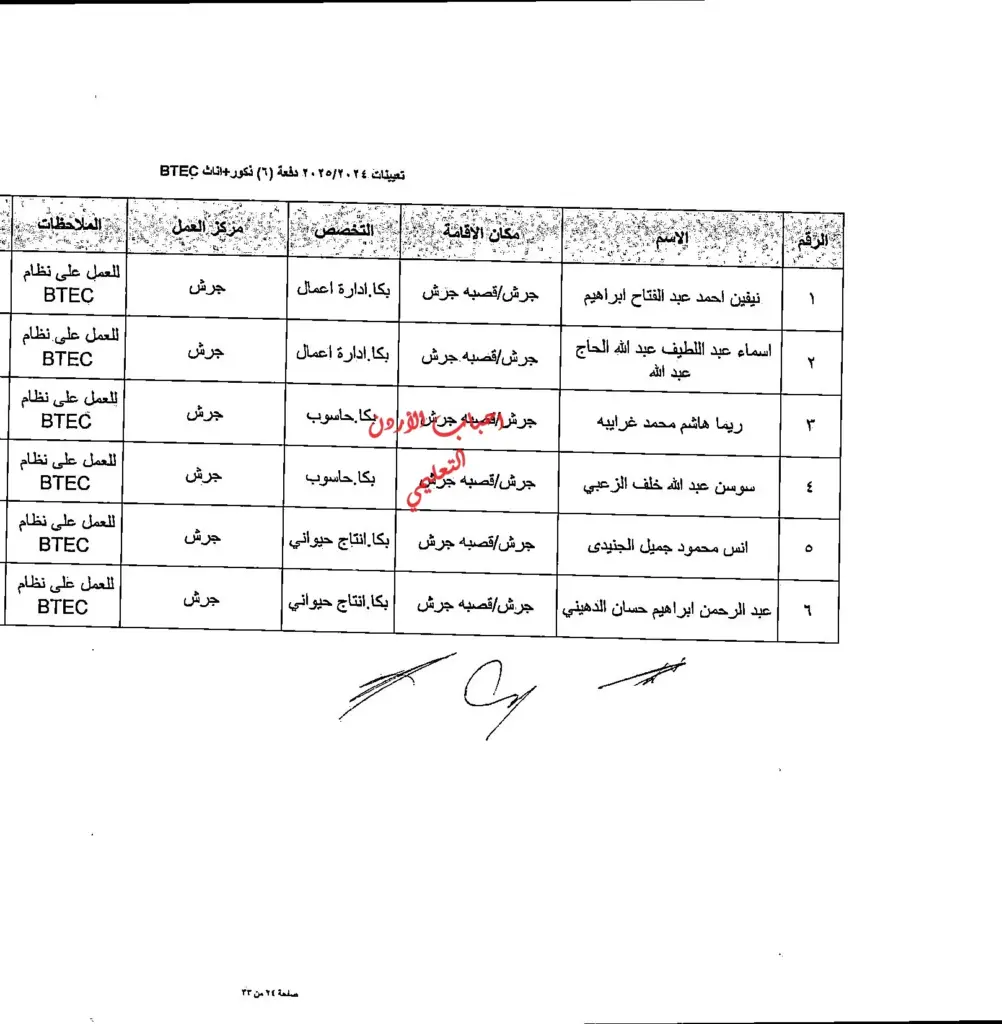 تعيينات ٢٠٢٥/٢٠٢٤ دفعة (٦) ذكور+اناث BTEC
الرقم الاسم مكان الاقامة التخصص مركز العمل الملاحظات
١ نيفين احمد عبد الفتاح ابراهيم جرش/قصبه جرش بكا.ادارة اعمال جرش للعمل على نظام
BTEC
٢ اسماء عبد اللطيف عبد الله الحاج جرش/قصبه جرش بكا.ادارة اعمال جرش للعمل على نظام
عبد الله BTEC
٣ ريما هاشم محمد غرايبه جرش/قصبه جرش بكا.حاسوب جرش للعمل على نظام
BTEC
٤ سوسن عبد الله خلف الزعبي جرش/قصبه جرش بكا.حاسوب جرش للعمل على نظام
BTEC
٥ انس محمود جميل الجنيدى جرش/قصبه جرش بكا.انتاج حيواني جرش للعمل على نظام
BTEC
٦ عبد الرحمن ابراهيم حسان الدهيني جرش/قصبه جرش بكا.انتاج حيواني جرش للعمل على نظام
BTEC
الأردن
التعليمي
صفحة ٢٤ من ٣٣